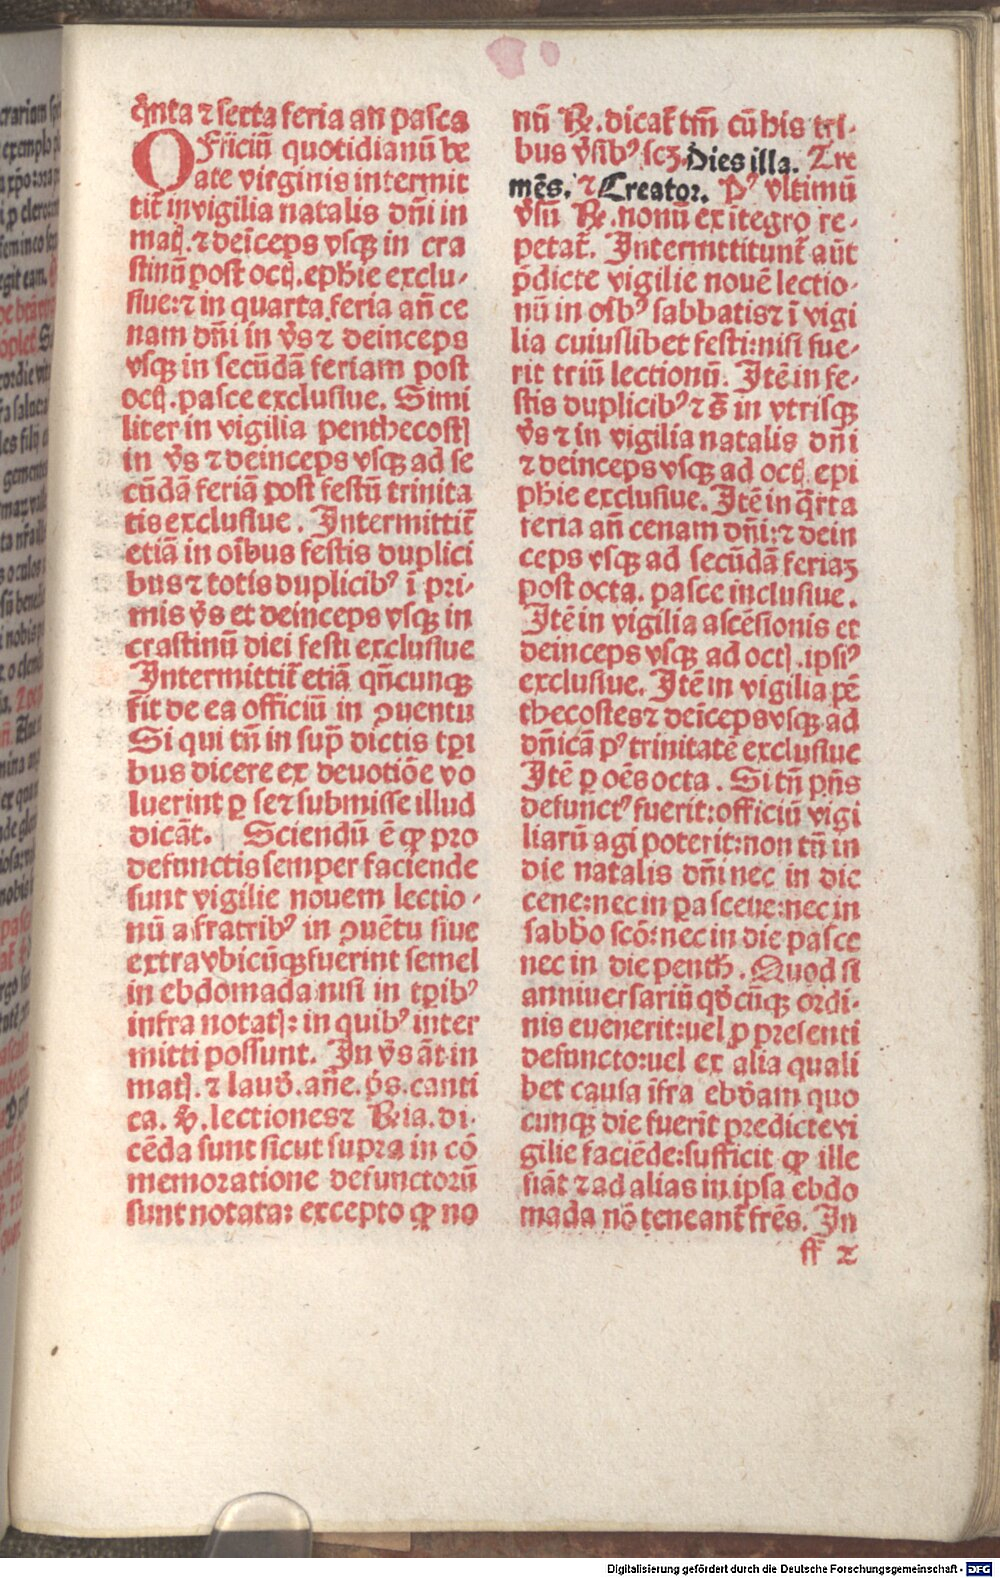 q̄nta ⁊ sexta feria an̄ pasca
Officiū quotidianū be
ate virginis intermit
tit̄ in vigilia natalis dn̄i in
matꝭ. ⁊ deīceps vsqꝫ in cra
stinū post octꝭ. ep̄hie exclu-
siue: ⁊ in quarta feria an̄ ce
nam dn̄i in v̄s ⁊ deinceps
vsqꝫ in secūdā feriam post
octꝭ. pasce exclusiue. Simi
liter in vigilia penthecostꝭ
in v̄s ⁊ deinceps vsqꝫ ad se
cūdā feriā post festū trinita
tis exclusiue. Intermittit̄
etiā in oībus festis duplici
bus ⁊ totis duplicibꝰ ī pri-
mis v̄s et deinceps vsqꝫ in
crastinū diei festi exclusiue
Intermittit̄ etiā qn̄cunqꝫ
fit de ea officiū in ꝯuentu
Si qui tn̄ in sup̄ dictis tꝑi
bus dicere ex deuotiōe vo
luerint ꝑ se ⁊ submisse illud
dicāt. Sciendū ē ꝙ pro
defunctis semper faciende
sunt vigilie nouem lectio-
nū a fratribꝰ in ꝯuētu siue
extra vbicūqꝫ fuerint semel
in ebdomada nisi in tꝑibꝰ
infra notatꝭ: in quibꝰ inter
mitti possunt. In v̄s āt in
matꝭ. ⁊ laud̄. an̄e. p̄s. canti
ca. ℣. lectiones ⁊ ℟ia. di-
cēda sunt sicut supra in cō
memoratione defunctorū
sunt notata: excepto ꝙ no
nū ℟. dicat̄ tm̄ cū his tri-
bus v̄sibꝰ scꝫ. Dies illa. Tre
mēs. ⁊ Creator. Pꝰ vltimū
v̄sū ℟. nonū ex ītegro re-
petat̄. Intermittitunt̄ aūt
p̄dicte vigilie nouē lectio-
nū in oībꝰ sabbatis ⁊ ī vigi
lia cuiuslibet festi: nisi fue-
rit triū lectionū. Itē in fe-
stis duplicibꝰ ⁊ s̄ in vtrisqꝫ
v̄s ⁊ in vigilia natalis dn̄i
⁊ deinceps vsqꝫ ad octꝭ. epi
phie exclusiue. Itē in q̄rta
feria an̄ cenam dn̄i: ⁊ dein
ceps vsqꝫ ad secūdā feriaꝫ
post octa. pasce inclusiue.
Itē in vigilia ascēsionis et
deinceps vsqꝫ ad octꝭ. ipsiꝰ
exclusiue. Itē in vigilia pē
thecostes ⁊ deīceps vsqꝫ ad
dn̄icā pꝰ trinitatē exclusiue
Itē ꝑ oēs octa. Si tn̄ pn̄s
defunctꝰ fuerit: officiū vigi
liarū agi poterit: non tn̄ in
die natalis dn̄i nec in die
cene: nec in ꝑasceue: nec in
sabb̄o scō: nec in die pasce
nec in die penth̄. Quod si
anniuersariū qd̄cūqꝫ ordi-
nis euenerit: uel ꝓ presenti
defuncto: uel ex alia quali
bet causa īfra ebd̄am quo
cunqꝫ die fuerit p̄redicte vi
gilie faciēde: sufficit ꝙ ille
fiāt ⁊ ad alias in ipsa ebdo
mada nō teneant̄ fr̄es. In
ff 2
Digitalisierung gefördert durch die Deutsche Forschungsgemeinschaft - DFG